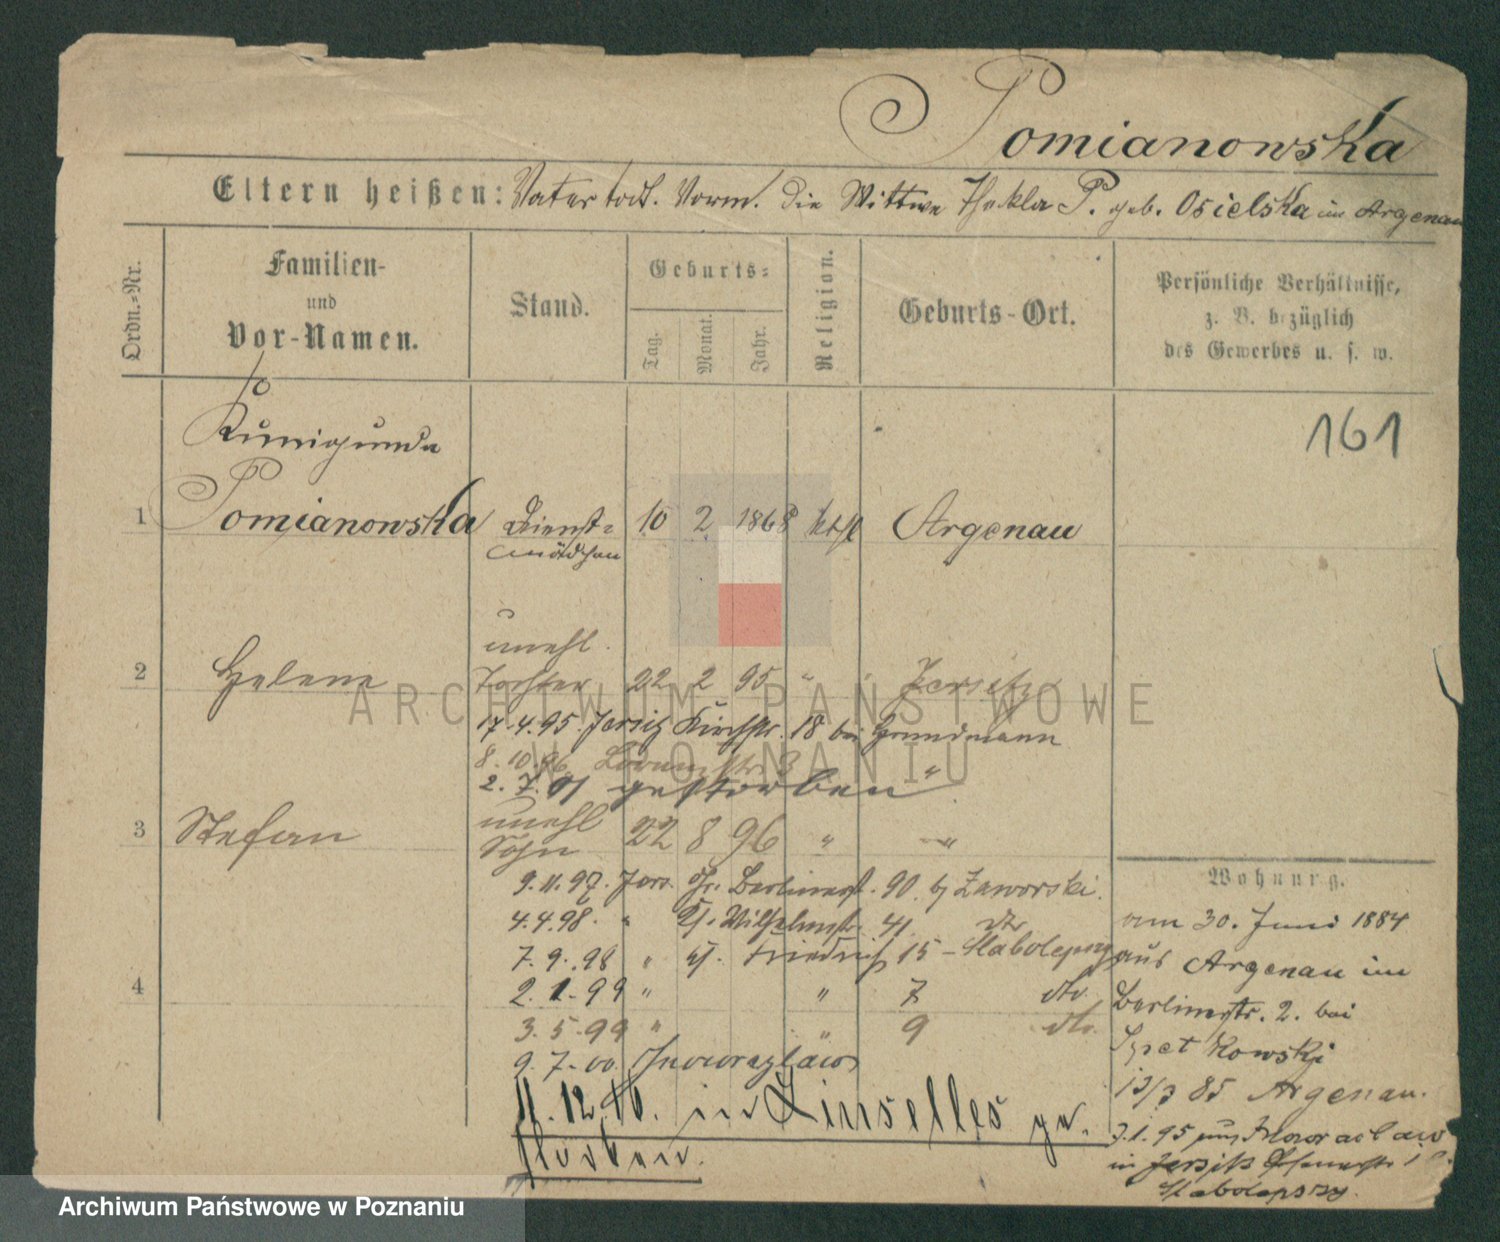 Pomianowska
Eltern heißen: Vater todt. Vorm. die Wittwe Thekla P. geb. Osielska in Argenau
Ordn.=Nr.
Familien-
und
Vor-Namen.
Stand.
Geburts=
Tag.
Monat.
Jahr.
Religion.
Geburts-Ort.
Persönliche Verhältnisse,
z. B. bezüglich
des Gewerbes u. s. w.
161
Kunigunda
1 Pomianowska Dienst= 10 2 1868 kath Argenau
mädchen
unehl.
2 Helene Tochter 22 2 95 " Jersitz
17.4.95. Jersitz Kirchstr. 18 bei Grundmann
8.10.96 3
2.7.01 gestorben "
unehl
3 Stefan Sohn 22 8 96 " "
9.11.97. Jers. Gr. Berlinerst. 90. b/ Zaworski.
4.4.98. " Wilhelmstr. 41 dto
7.9.98 " Friedrich 15 - Slabolepszy
4 2.1.99 " " 7 dto.
3.5.99 " " 9 dto.
9.7.00 Inowrazlaw
11.12.16. in Linselles ge.
storben.
Wohnung.
am 30. Juni 1884
aus Argenau im
Berlinerstr. 2. bei
13/3 85 Argenau.
3.1.95 aus Inowraclaw
in Jersitz
Slabolepszy.
ARCHIWUM PAŃSTWOWE
W POZNANIU
Archiwum Państwowe w Poznaniu